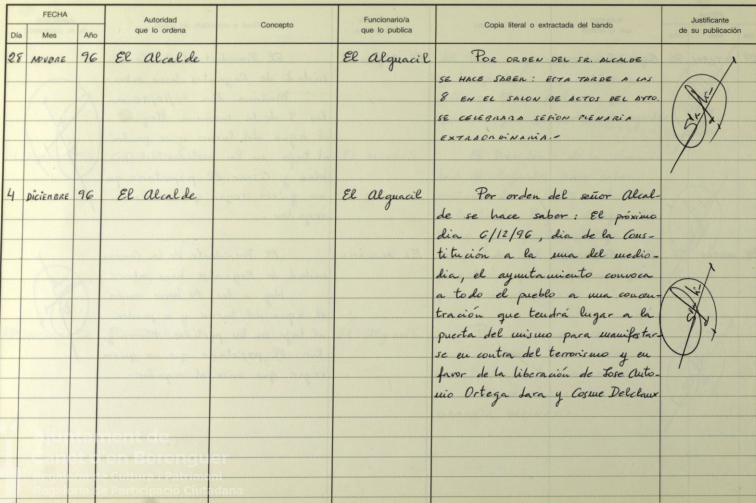 FECHA
Día Mes Año
Autoridad
que lo ordena
Concepto
Funcionario/a
que lo publica
Copia literal o extractada del bando
Justificante
de su publicación
28 NOVBRE 96 El Alcalde El Alguacil
POR ORDEN DEL SR. ALCALDE
SE HACE SABER: ESTA TARDE A LAS
8 EN EL SALON DE ACTOS DEL AYTO.
SE CELEBRARA SESION PLENARIA
EXTRAORDINARIA.-
4 DICIEMBRE 96 El Alcalde El Alguacil
Por orden del señor Alcal-
de se hace saber: El próximo
dia 6/12/96, dia de la Cons-
titución a la una del medio-
dia, el ayuntamiento convoca
a todo el pueblo a una concen-
tración que tendrá lugar a la
puerta del mismo para manifestar-
se en contra del terrorismo y en
favor de la liberación de Jose Anto-
nio Ortega Lara y Cosme Delclaux
Ajuntament de
Canet d'en Berenguer
Regidoria de Cultura i Patrimoni
Regidoria de Participació Ciutadana